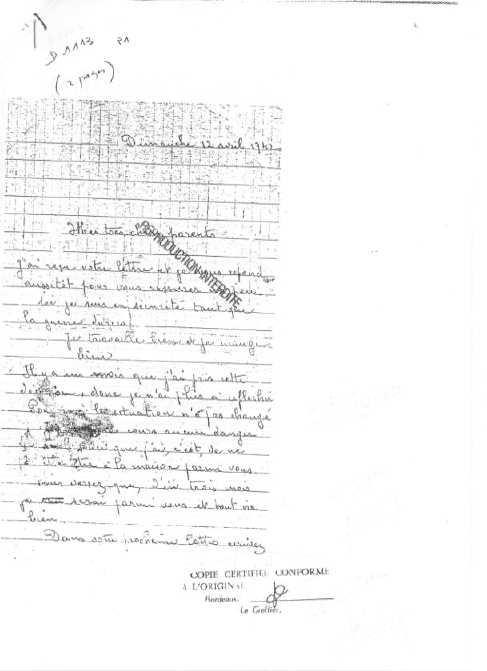 D 1113 21
(2 pages)
Dimanche 12 avril 1942
Mes très chers parents
REPRODUCTION INTERDITE
J'ai reçu votre lettre et je vous repond
aussitôt pour vous rassurer
je suis en sécurité tant que
la guerre durera
Je travaille bien et je mange
bien
Il y a un mois que j'ai pris cette
donc je n'ai plus a réflechir
la situation n'a pas changé
cours aucun danger
que j'ai, c'est de ne
à la maison parmi vous
verrez que, d'ici trois mois
je serai parmi vous et tout ira
bien
Dans votre prochaine lettre écrivez
COPIE CERTIFIÉE CONFORME
A L'ORIGINAL
Bordeaux,
Le Greffier,